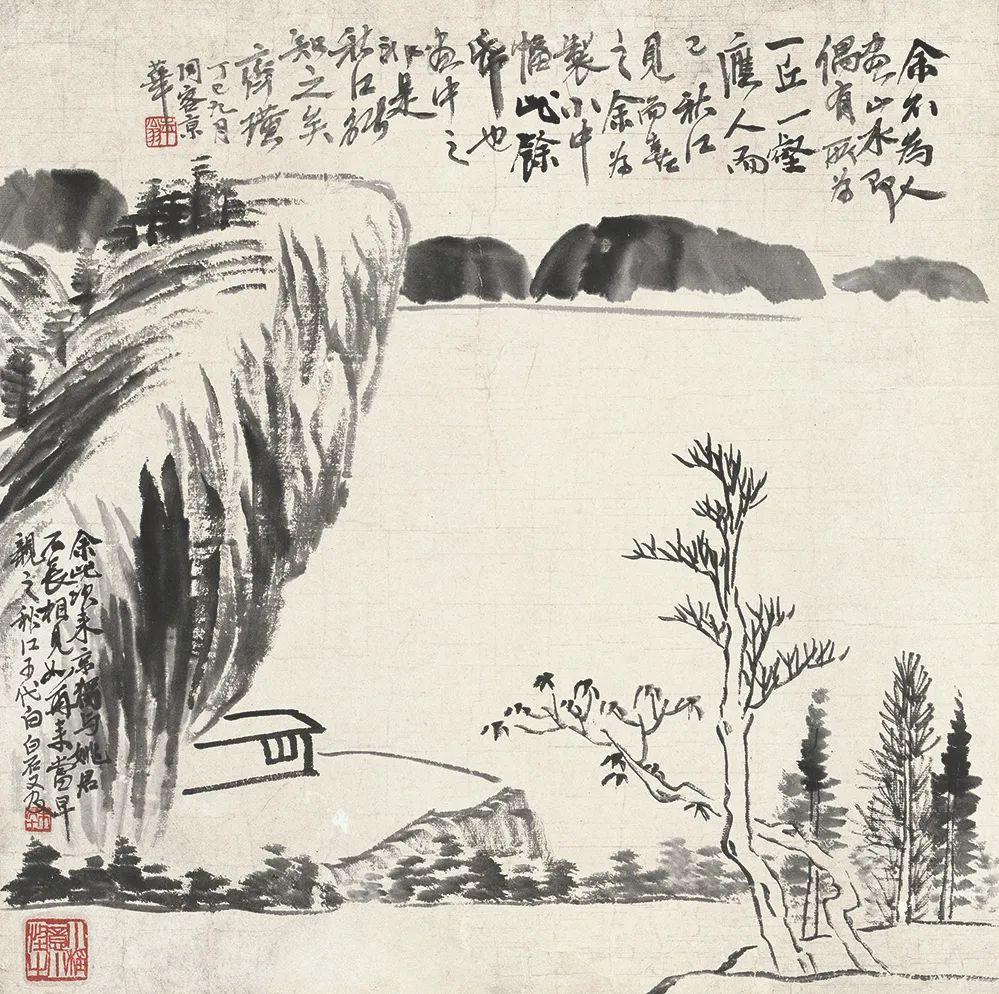 余不為人
畫山水即
偶有所為
一丘一壑
應人而
已秋江
見而喜
之余為
製小中
幅此餘
紙也
畫中之
是
秋江能
知之矣
齊璜
丁巳九月
同客京
華
余此次来京獨与姚君
不長相見如再来當早
親之秋江子代白白石又及